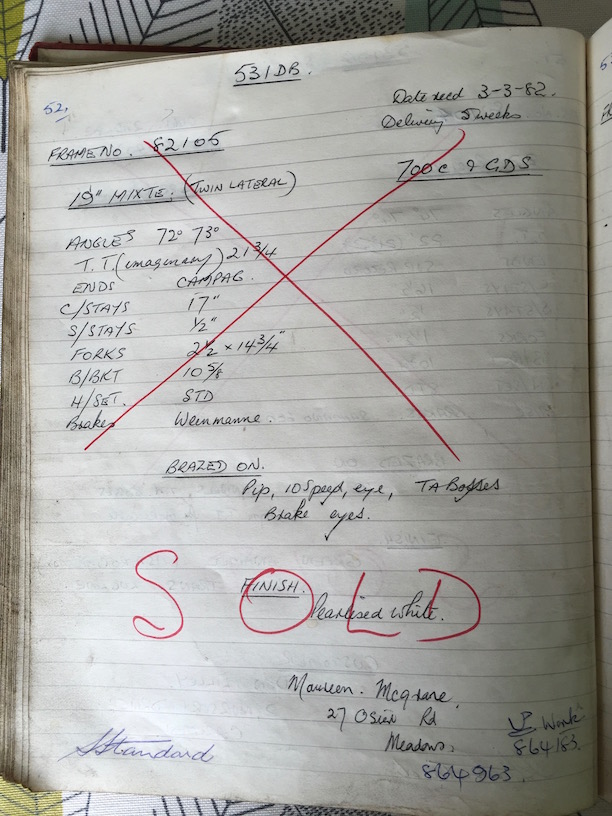 531 DB.
52.
Date recd 3-3-82.
Delivery 5 weeks
FRAME NO. 82105
700c & GDS
19" MIXTE; (TWIN LATERAL)
ANGLES 72° 73°
T.T. (imaginary) 21 3/4
ENDS CAMPAG.
C/STAYS 17"
S/STAYS 1/2"
FORKS 2 1/2 × 14 3/4"
B/BKT 10 5/8
H/SET. STD
Brakes Weinmanne.
BRAZED ON.
Pip, 10 Speed, eye, TA Bosses
Brake eyes.
SOLD
FINISH.
Pearlised white.
Maureen. McGrane,
27 Osier Rd
Meadows,
864963.
Work
864183.
Standard